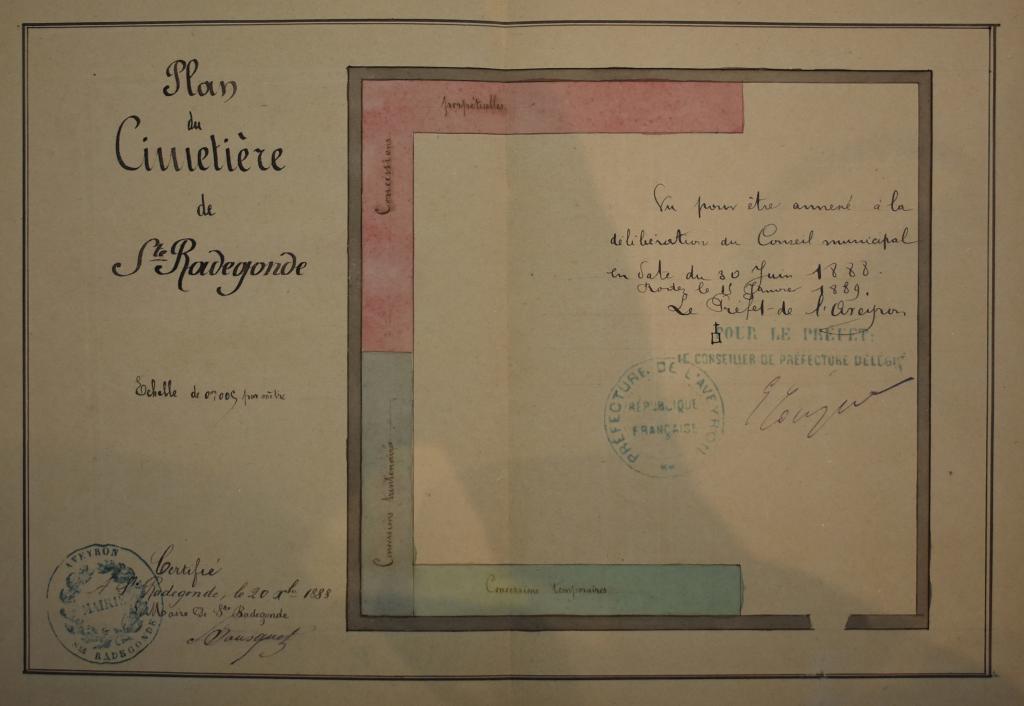 Plan
du
Cimetière
de
Ste Radegonde
Echelle de 0m005 par mètre
Certifié
Ste Radegonde, le 20 Xbre 1888
Maire de Ste Radegonde
Bousquet
AVEYRON
MAIRIE
Ste RADEGONDE
perpétuelles
Concessions
Concessions trentenaires
Concessions temporaires
Vu pour être annexé à la
délibération du Conseil municipal
en date du 30 Juin 1888.
Rodez le 15 Janvier 1889.
Le Préfet de l'Aveyron
POUR LE PRÉFET:
LE CONSEILLER DE PRÉFECTURE DÉLÉGUÉ
PRÉFECTURE DE L'AVEYRON
RÉPUBLIQUE
FRANÇAISE